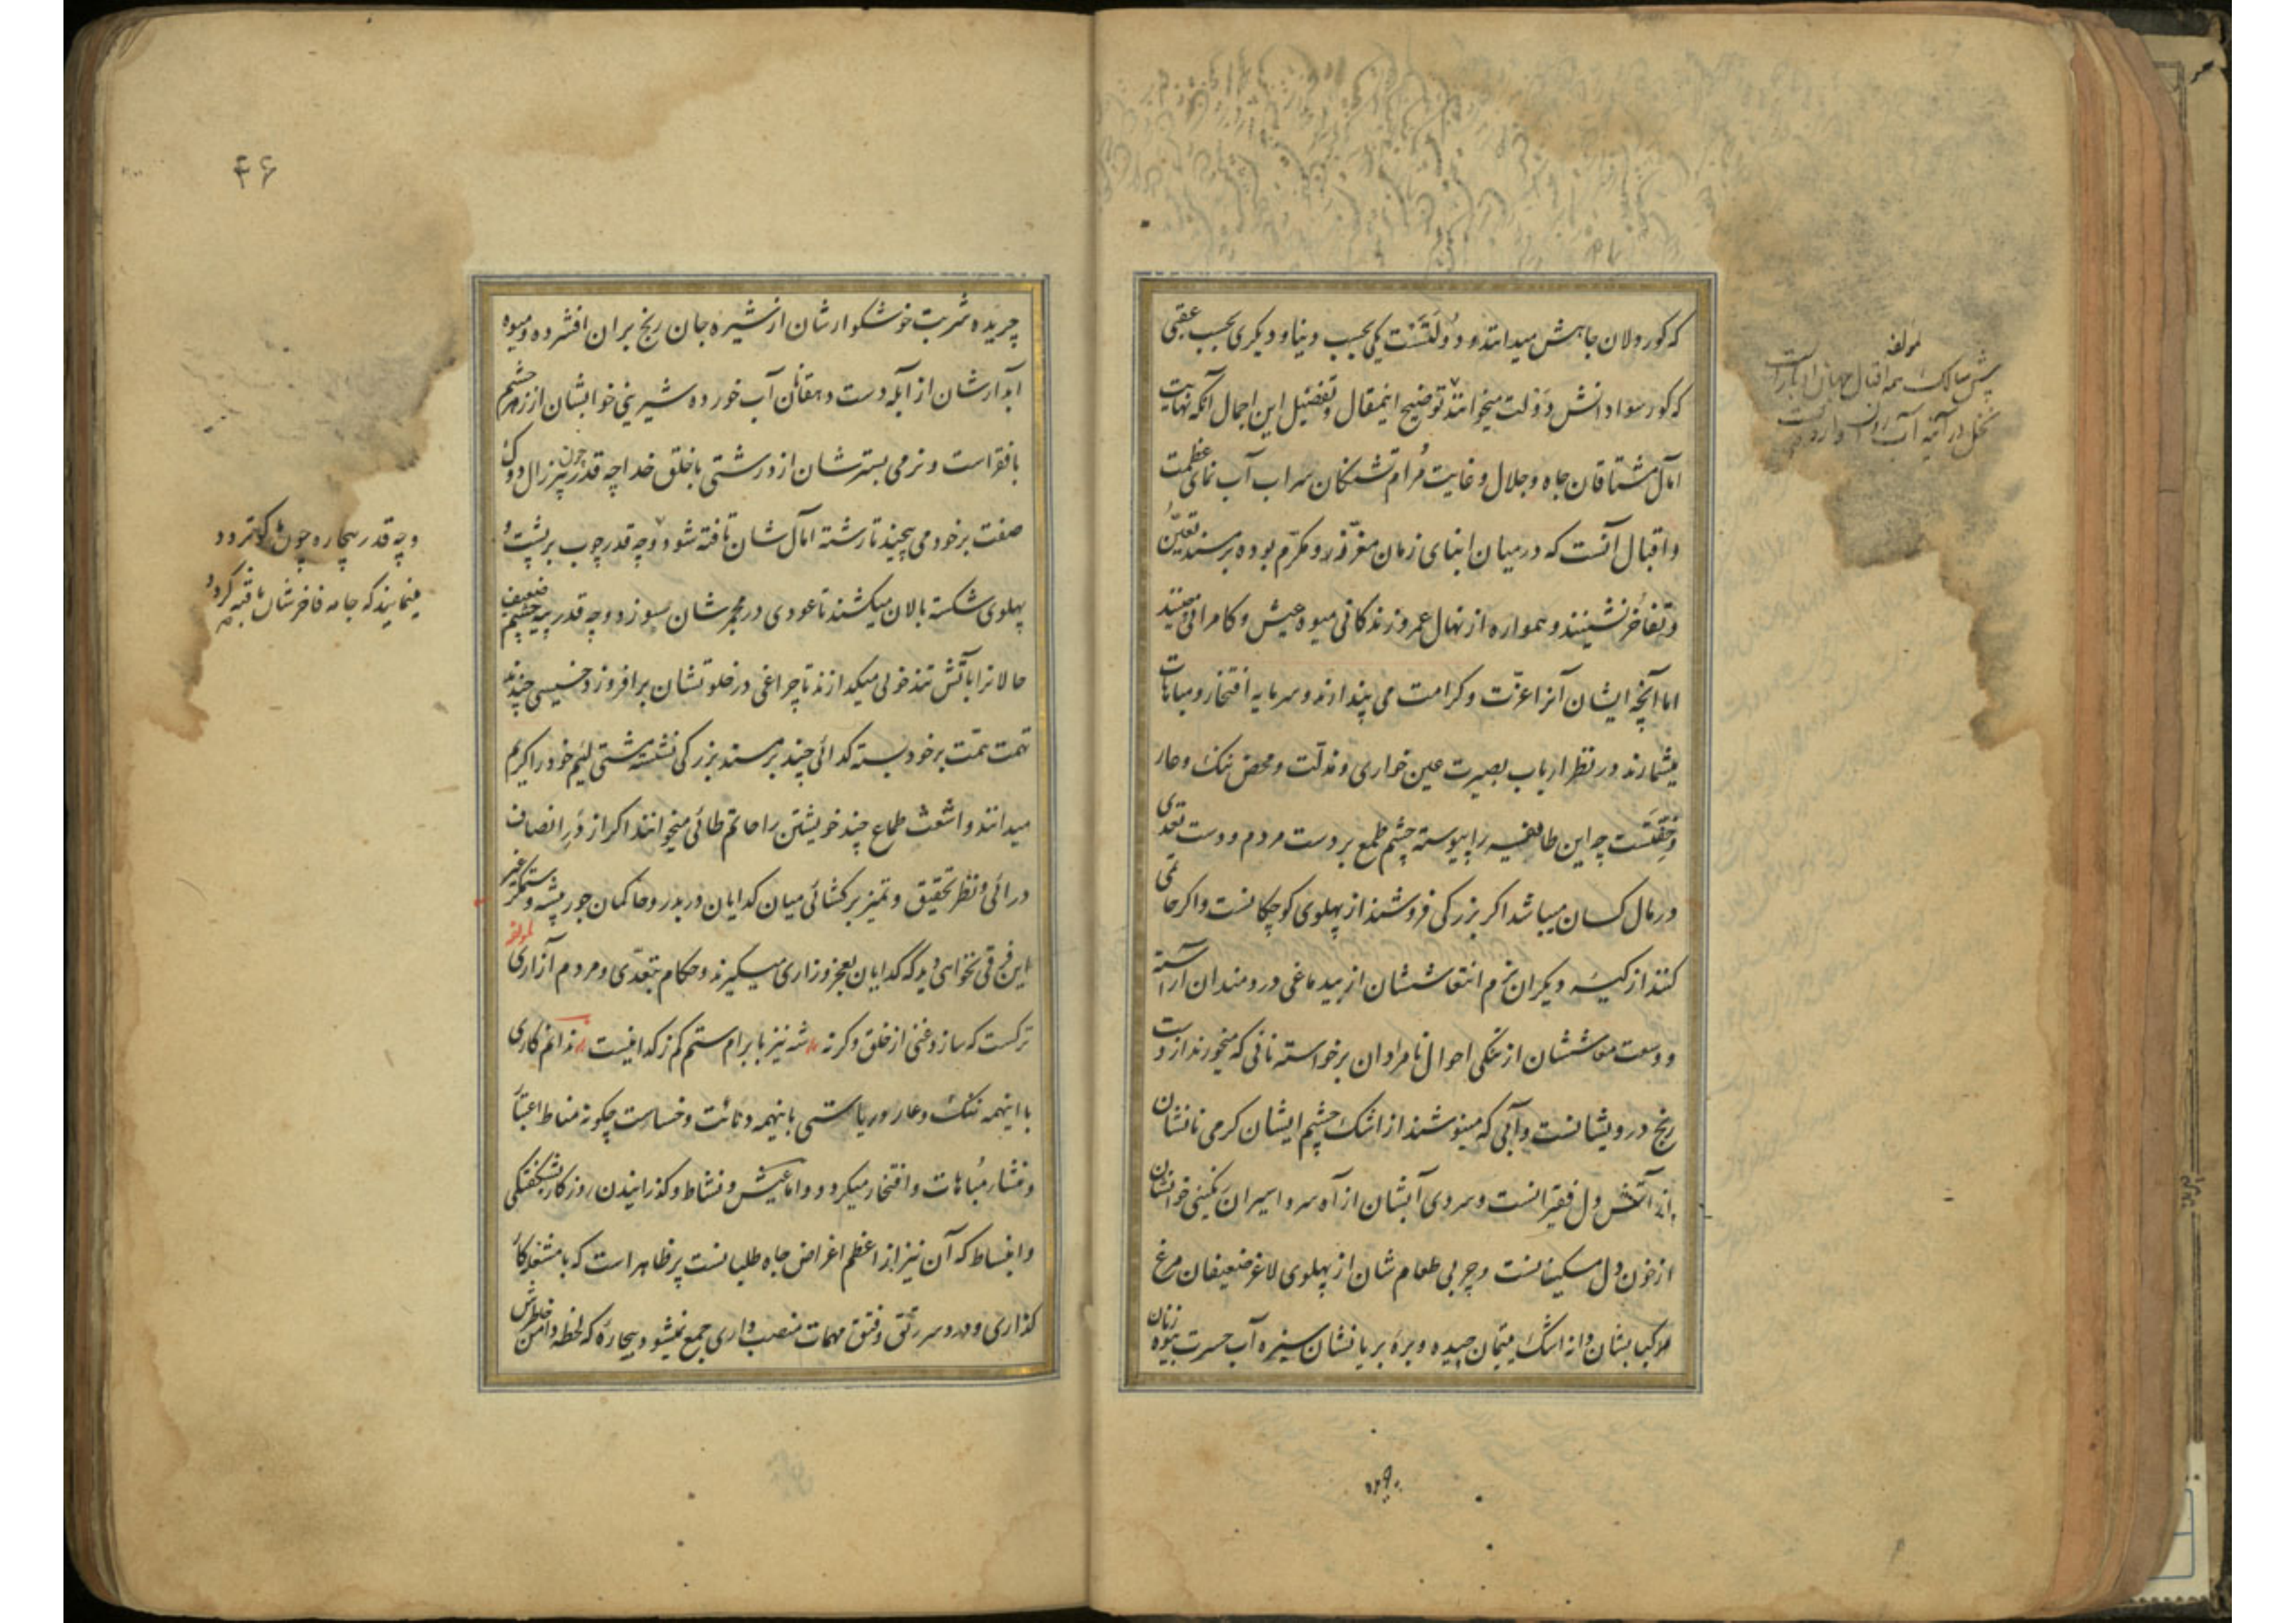 که کوردلان جاهش میدانند و دولتست یکی بحسب دنیا و دیگری بحسب عقبی
که کور سواد دانش دولت میخوانند توضیح اینمقال و تفصیل این اجمال آنکه نهایت
آمال مشتاقان جاه و جلال و غایت مرام تشنگان سراب آب نمای عظمت
و اقبال آنست که در میان ابنای زمان معزز و مکرم بوده بر مسند تعین
و تفاخر نشینند و همواره از نهال عمر و زندگانی میوه عیش و کامرانی چینند
اما آنچه ایشان آنرا عزت و کرامت می پندارند و سرمایه افتخار و مباهات
میشمارند در نظر ارباب بصیرت عین خواری و مذلت و محض ننک و عار
و خفتست چه این طایفه را پیوسته چشم طمع بر دست مردم و دست تعدی
در مال کسان میباشد اکر بزرکی فروشند از پهلوی کوچکانست و اکر حاتمی
کنند از کیسه دیکران بزم انتعاششان از بیدماغی دردمندان آراسته
و وسعت معاششان از تنکی احوال نامرادان برخواسته نانی که میخورند از دست
رنج درویشانست و آبی که مینوشند از اشک چشم ایشان کرمی نانشان
از آتش دل فقیرانست و سردی آبشان از آه سرد اسیران رنکینی خوانشان
از خون دل مسکینانست و چربی طعام شان از پهلوی لاغر ضعیفان مرغ
کبابشان دانه اشک یتیمان چیده و بره بریانشان سبزه آب حسرت بیوه زنان
لمولفه
پیش سالک همه اقبال جهان ادبارست
نخل در آینه آب روان
چریده شربت خوشکوارشان از شیره جان رنج بران افشرده و میوه
آبدارشان از آبله دست دهقانان آب خورده شیرینی خوابشان از زهر چشم
با فقراست و نرمی بسترشان از درشتی با خلق خدا چه قدر چون پیر زال دوک
صفت بر خود می پیچند تا رشته آمال شان تافته شود و چه قدر چوب بر پشت و
پهلوی شکسته بالان میکشند تا عودی در مجمر شان بسوزد و چه قدر پیه چشم ضعیف
حالانرا بآتش تندخوئی میکدازند تا چراغی در خلوتشان برافروزد خسیسی چند
تهمت همت بر خود بسته کدائی چند بر مسند بزرکی نشسته مشتی لئیم خود را کریم
میدانند و اشعث طماع چند خویشتن را حاتم طائی میخوانند اکر از در انصاف
درآئی و نظر تحقیق و تمیز برکشائی میان کدایان دربدر و حاکمان جور پیشه و ستمکر غیر
این فرقی نخواهی دید که کدایان بعجز و زاری میکیرند و حکام بتعدی و مردم آزاری لمولفه
ترکست که سازد غنی از خلق و کرنه شه نیز بابرام ستم کم ز کدا نیست ندانم کاری
با اینهمه ننک و عار و ریاستی باینهمه دنائت و خساست چکونه مناط اعتبار
و منشار مباهات و افتخار میکردد و اما عیش و نشاط و کذرانیدن روزکار بشکفتکی
و انبساط که آن نیز از اعظم اغراض جاه طلبانست پر ظاهر است که با مشغله کار
کذاری و دردسر رتق و فتق مهمات منصب داری جمع نمیشود بیچاره که لحظه دامن خاطرش
و چه قدر بیچاره چون
مینمایند که جامه فاخرشان
۴۶